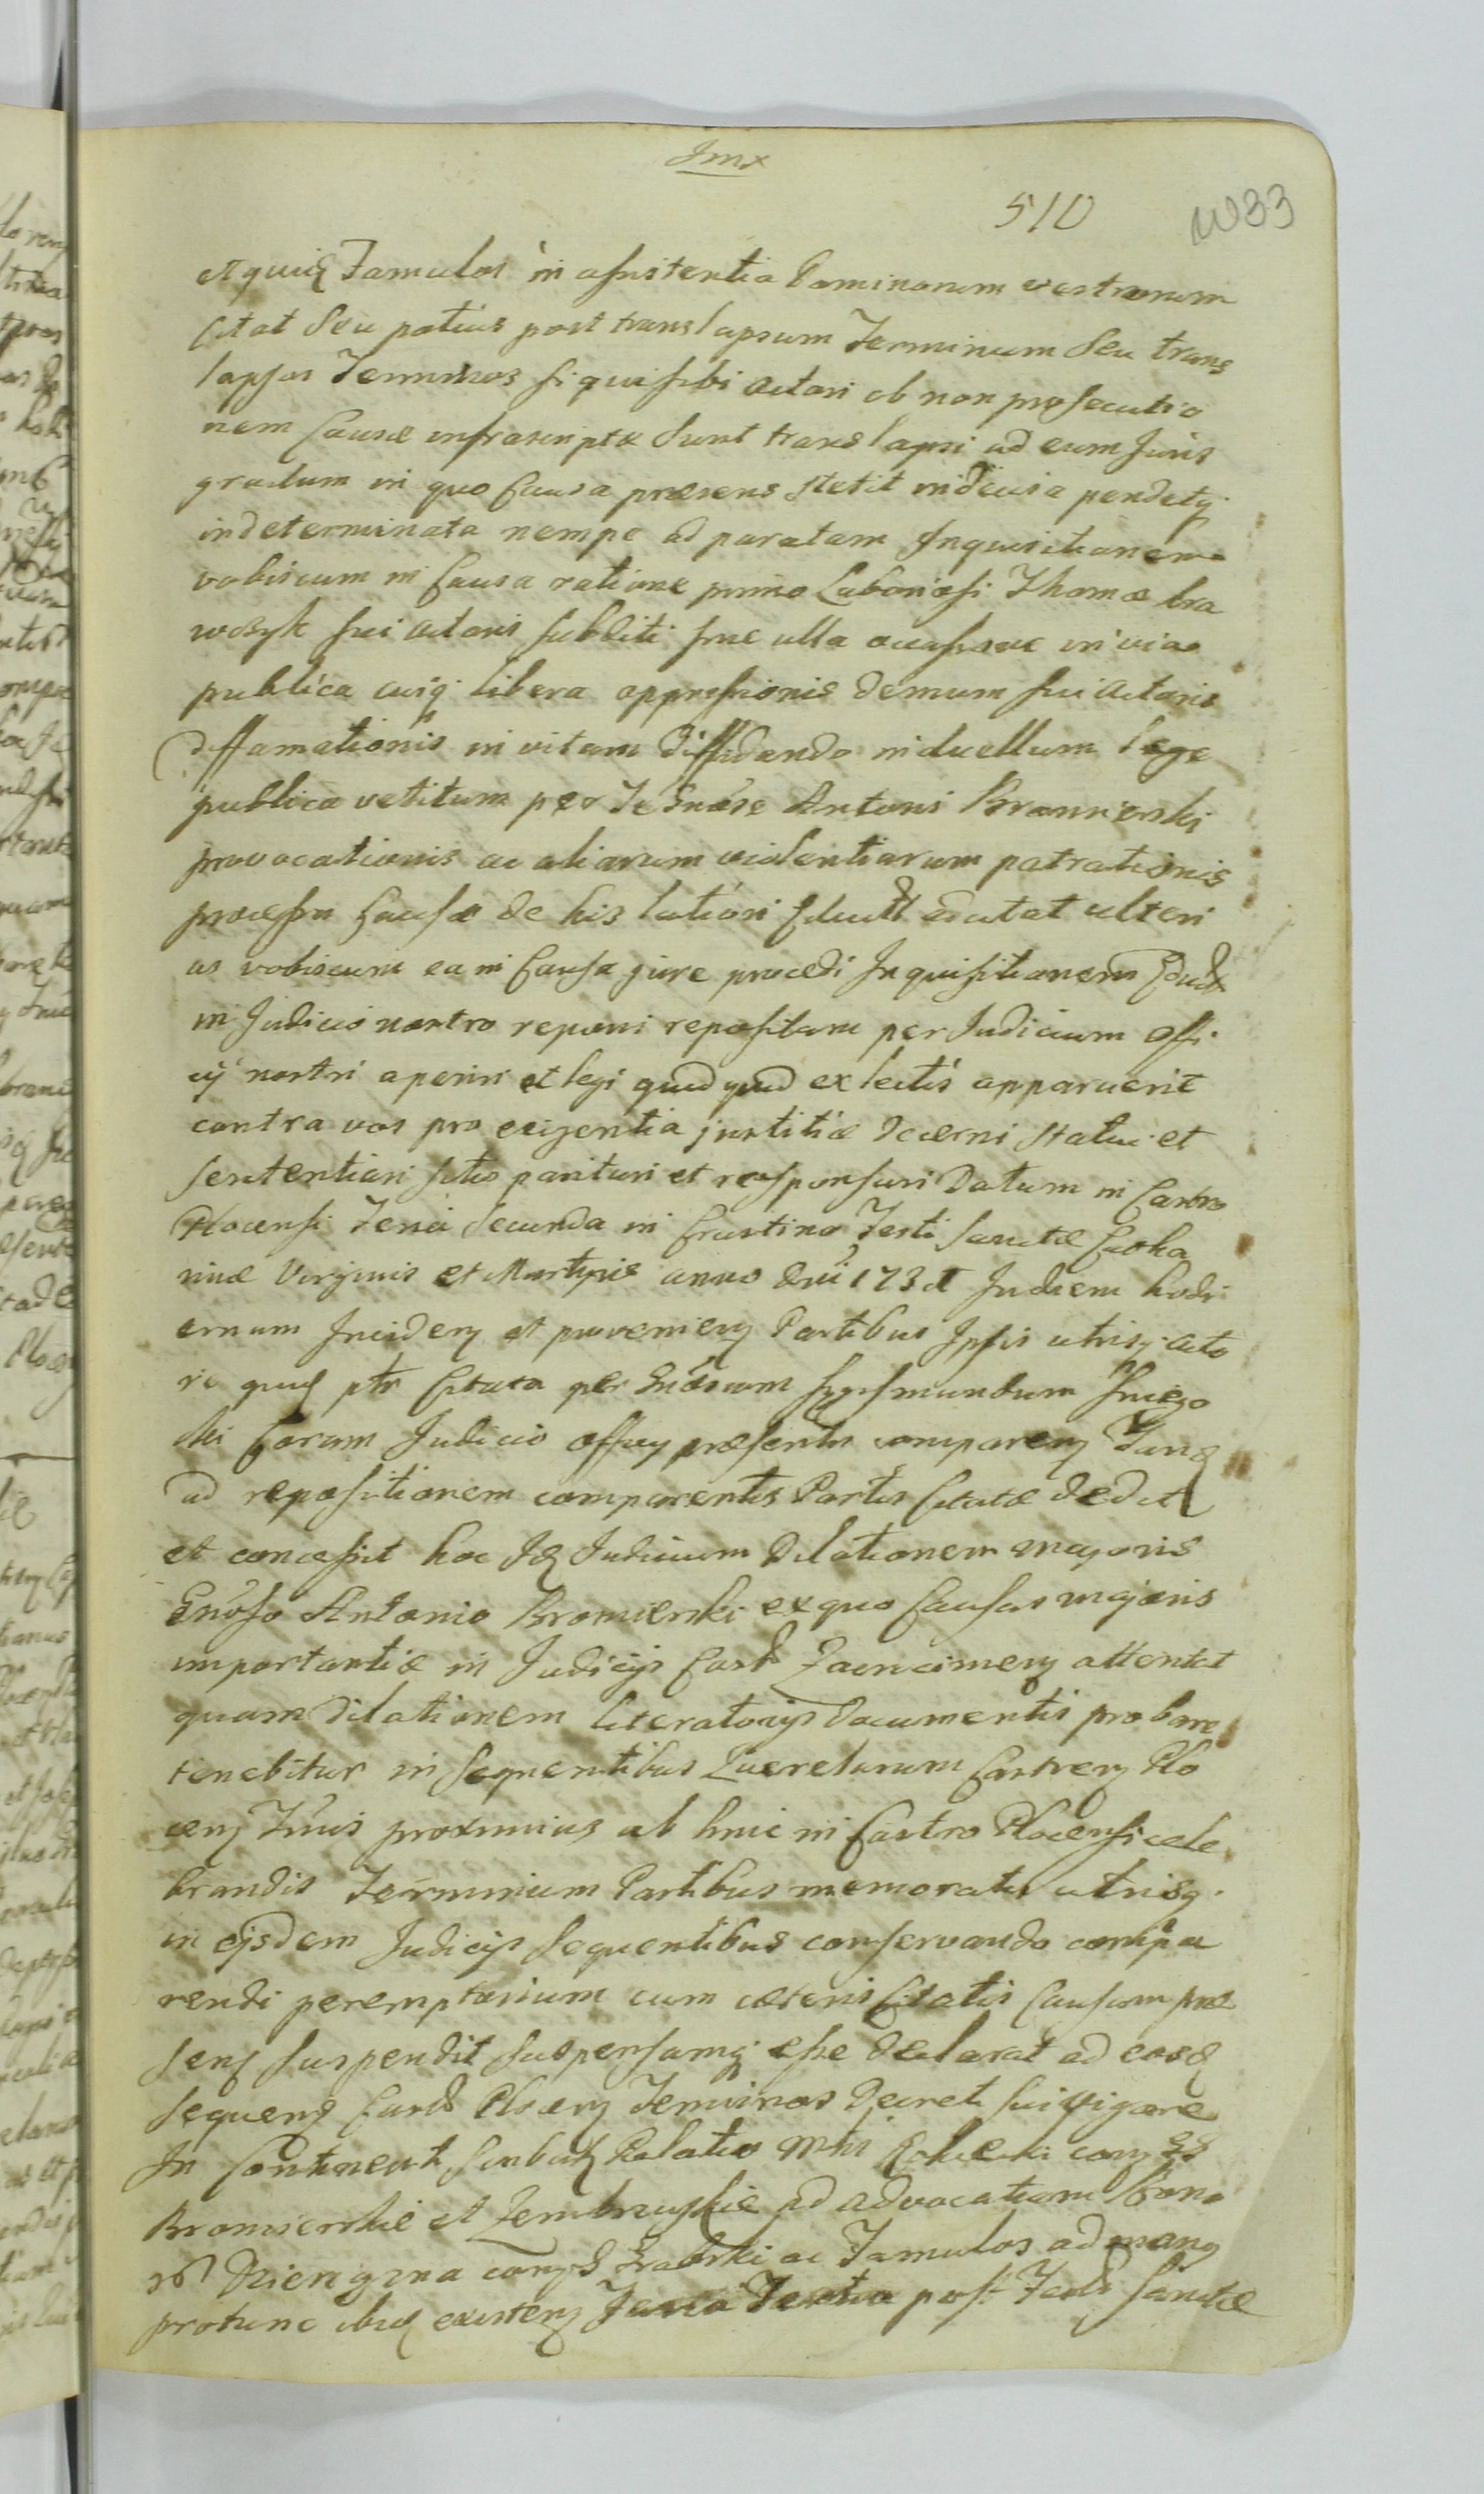 Jmx
510
1033
et quiq Famulos in assistentia Dominorum vestrorum
Citat Seu potius post translapsum Terminum Seu trans
lapsos Terminos siqui sibi Actori ob non prosecutio
nem Causæ infrascriptæ Sunt translapsi ad eum Juris
gradum in quo Causa præsens stetit indecisa pendetq
indeterminata nempe ad paratam Inquisitionem
vobiscum in Causa ratione primo Laboriosi Thomæ
sui Actoris subditi sine ulla occasione in via
publica cuiq libera oppressionis demum sui Actoris
diffamationis in vitam diffidando in duellum lege
publica vetitum per Te Gnose Antoni Bromierski
provocationis ac aliarum violentiarum patrationis
processu Causæ de his latiori edocet ulteri
us vobiscum ea in Causa jure procedi Inquisitionem
in Judicio nostro reponi repositam per Judicium Offi
cij nostri aperiri et legi quid quid ex lectis apparuerit
contra vos pro exigentia justitiæ decerni statui et
sententiari sitis parituri et responsuri Datum in Castro
Plocensi Feria Secunda in Crastino Festi Sanctæ Catha
rinæ Virginis et Martyris anno Dni 173 In diem hodi
ernum Inciden et provenien Partibus Ipsis utrisq acto
re quid ptr Citata per Gnosum Sygismundum
ski Coram Judicio Officy præsentis comparen Tunc
ad repositionem comparentis Partis Citatæ dedit
et concessit hoc Id Judicium Dilationem majoris
Gnoso Antonio Bromierski ex quo Causas majoris
importantiæ in Judicijs Cast Zacrocimen attentat
quam dilationem literatorijs documentis probare
tenebitur in Sequentibus Querelarum Castren Plo
cen Tnis proximius ab hinc in Castro Plocensi cele
brandis Terminum Partibus memoratis utrisq
in ejsdem Judicijs Sequentibus conservando compa
rendi peremptorium cum cæteris Citatis Causam præ
sens suspendit suspensamq esse declarat ad eosd
sequens Castr Plocen Terminos Decreti sui vigore
In Continenti scribit Relatio Mni con GG
Bromierskie et Zembrzuskie ad advocatum Bono
r Dziengzna con G Grabski ac Famulos ad man
protunc ibid existen Feria Tertia post Festi Sanctæ